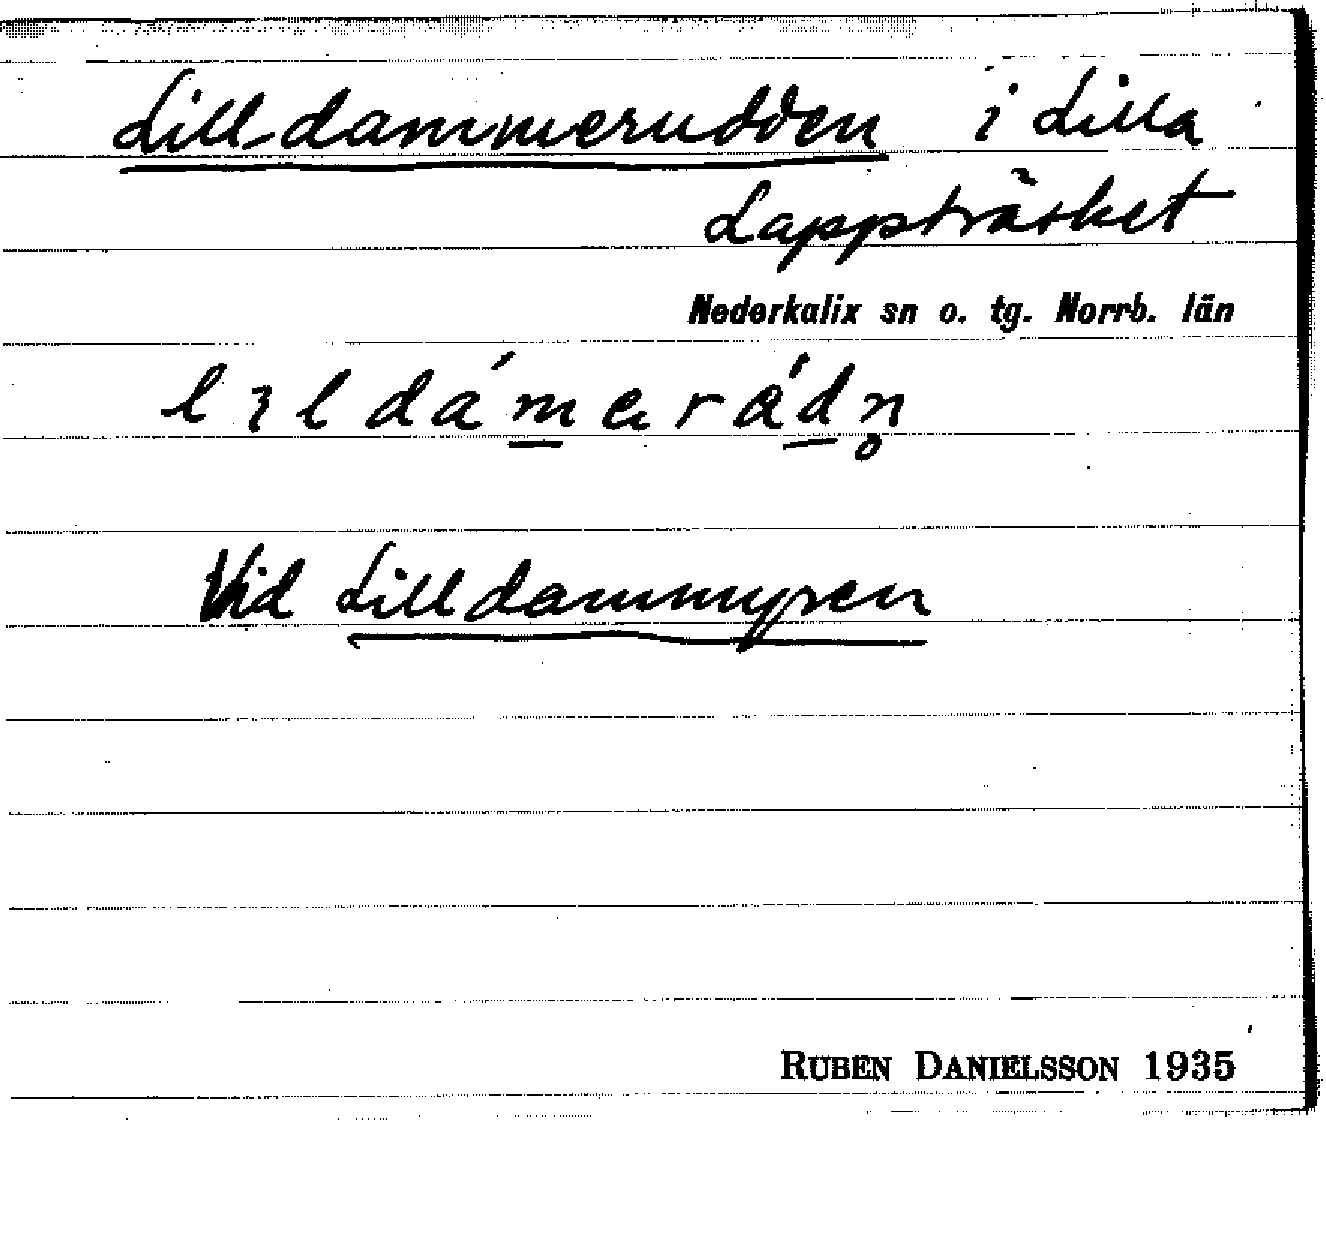 Lilldammerudden i Lilla
Lappträsket
Nederkalix sn o. tg. Norrb. län
lıldámarádn̥
Vid Lilldammyren
RUBEN DANIELSSON 1935